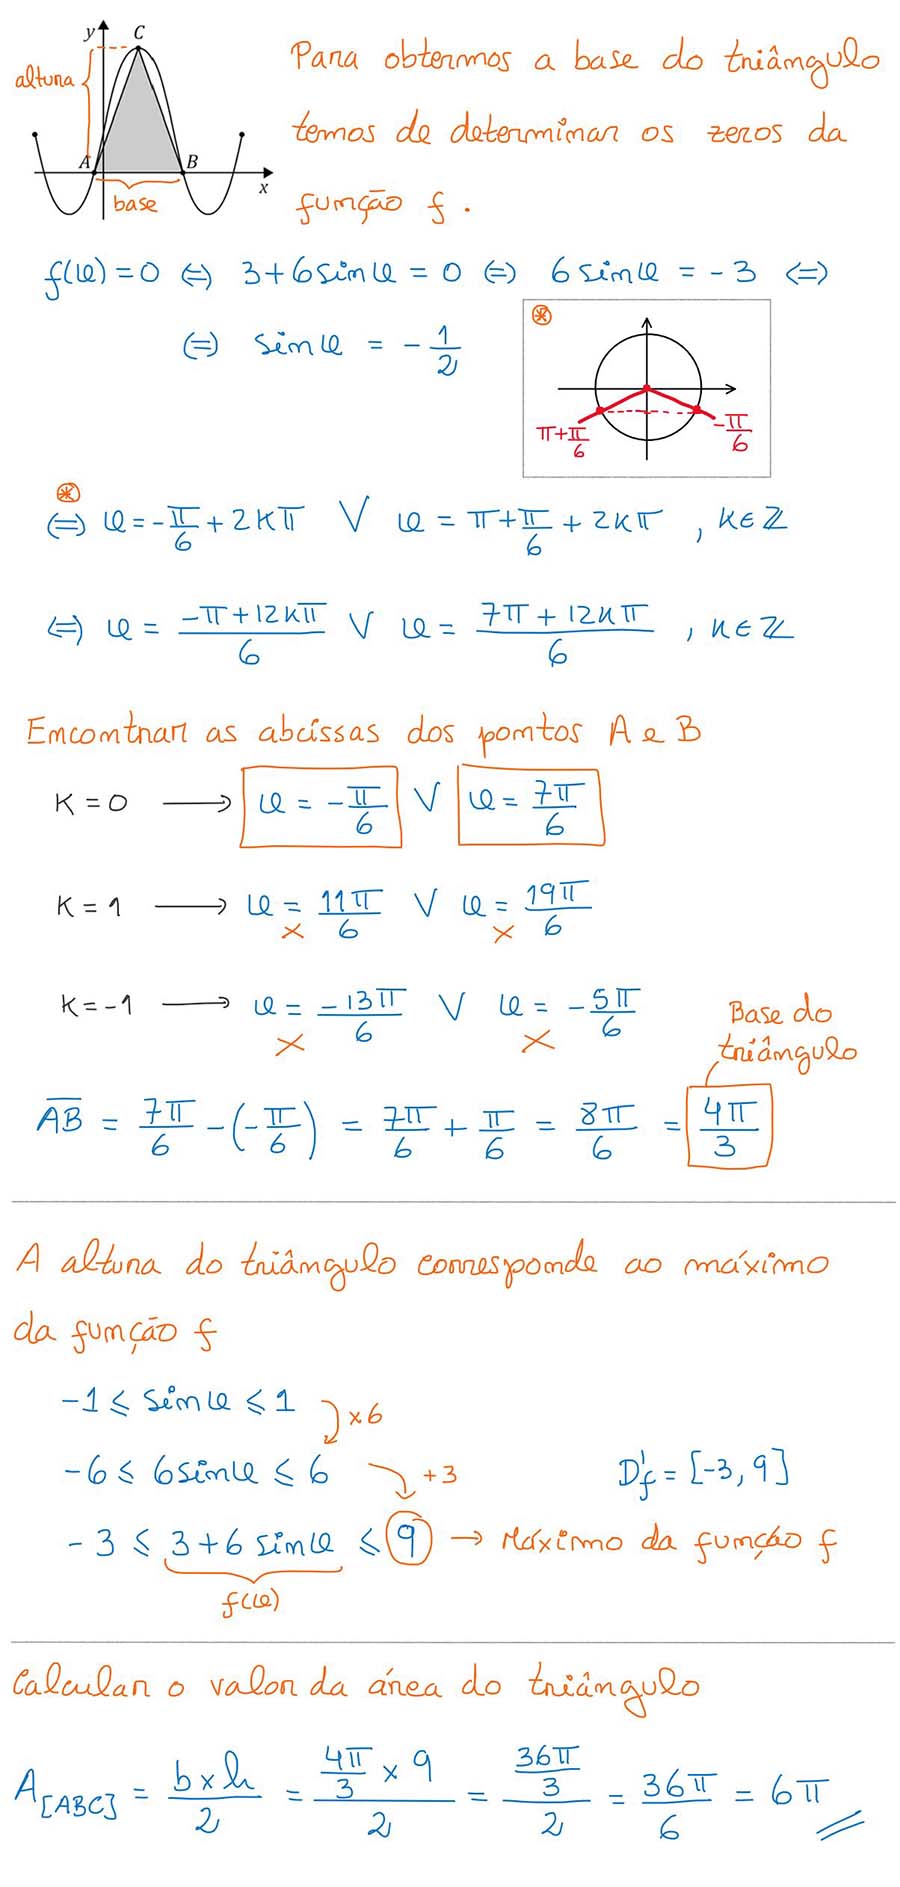 y C
altura
A B
x
base
Para obtermos a base do triângulo
temos de determinar os zeros da
função f.
f(x) = 0 ⇔ 3+6sinx = 0 ⇔ 6sinx = -3 ⇔
⇔ sinx = -1/2
*
π+π/6 -π/6
*
⇔ x = -π/6 + 2kπ ∨ x = π+π/6 + 2kπ , k∈ℤ
⇔ x = (-π+12kπ)/6 ∨ x = (7π+12kπ)/6 , k∈ℤ
Encontrar as abcissas dos pontos A e B
K = 0 → x = -π/6 ∨ x = 7π/6
K = 1 → x = 11π/6 ∨ x = 19π/6
× ×
K = -1 → x = -13π/6 ∨ x = -5π/6
× ×
Base do
triângulo
A̅B̅ = 7π/6 - (-π/6) = 7π/6 + π/6 = 8π/6 = 4π/3
A altura do triângulo corresponde ao máximo
da função f
-1 ⩽ sinx ⩽ 1
×6
-6 ⩽ 6sinx ⩽ 6 +3 D'f = [-3, 9]
-3 ⩽ 3+6sinx ⩽ 9 → Máximo da função f
f(x)
Calcular o valor da área do triângulo
A[ABC] = (b×h)/2 = (4π/3 × 9)/2 = (36π/3)/2 = 36π/6 = 6π